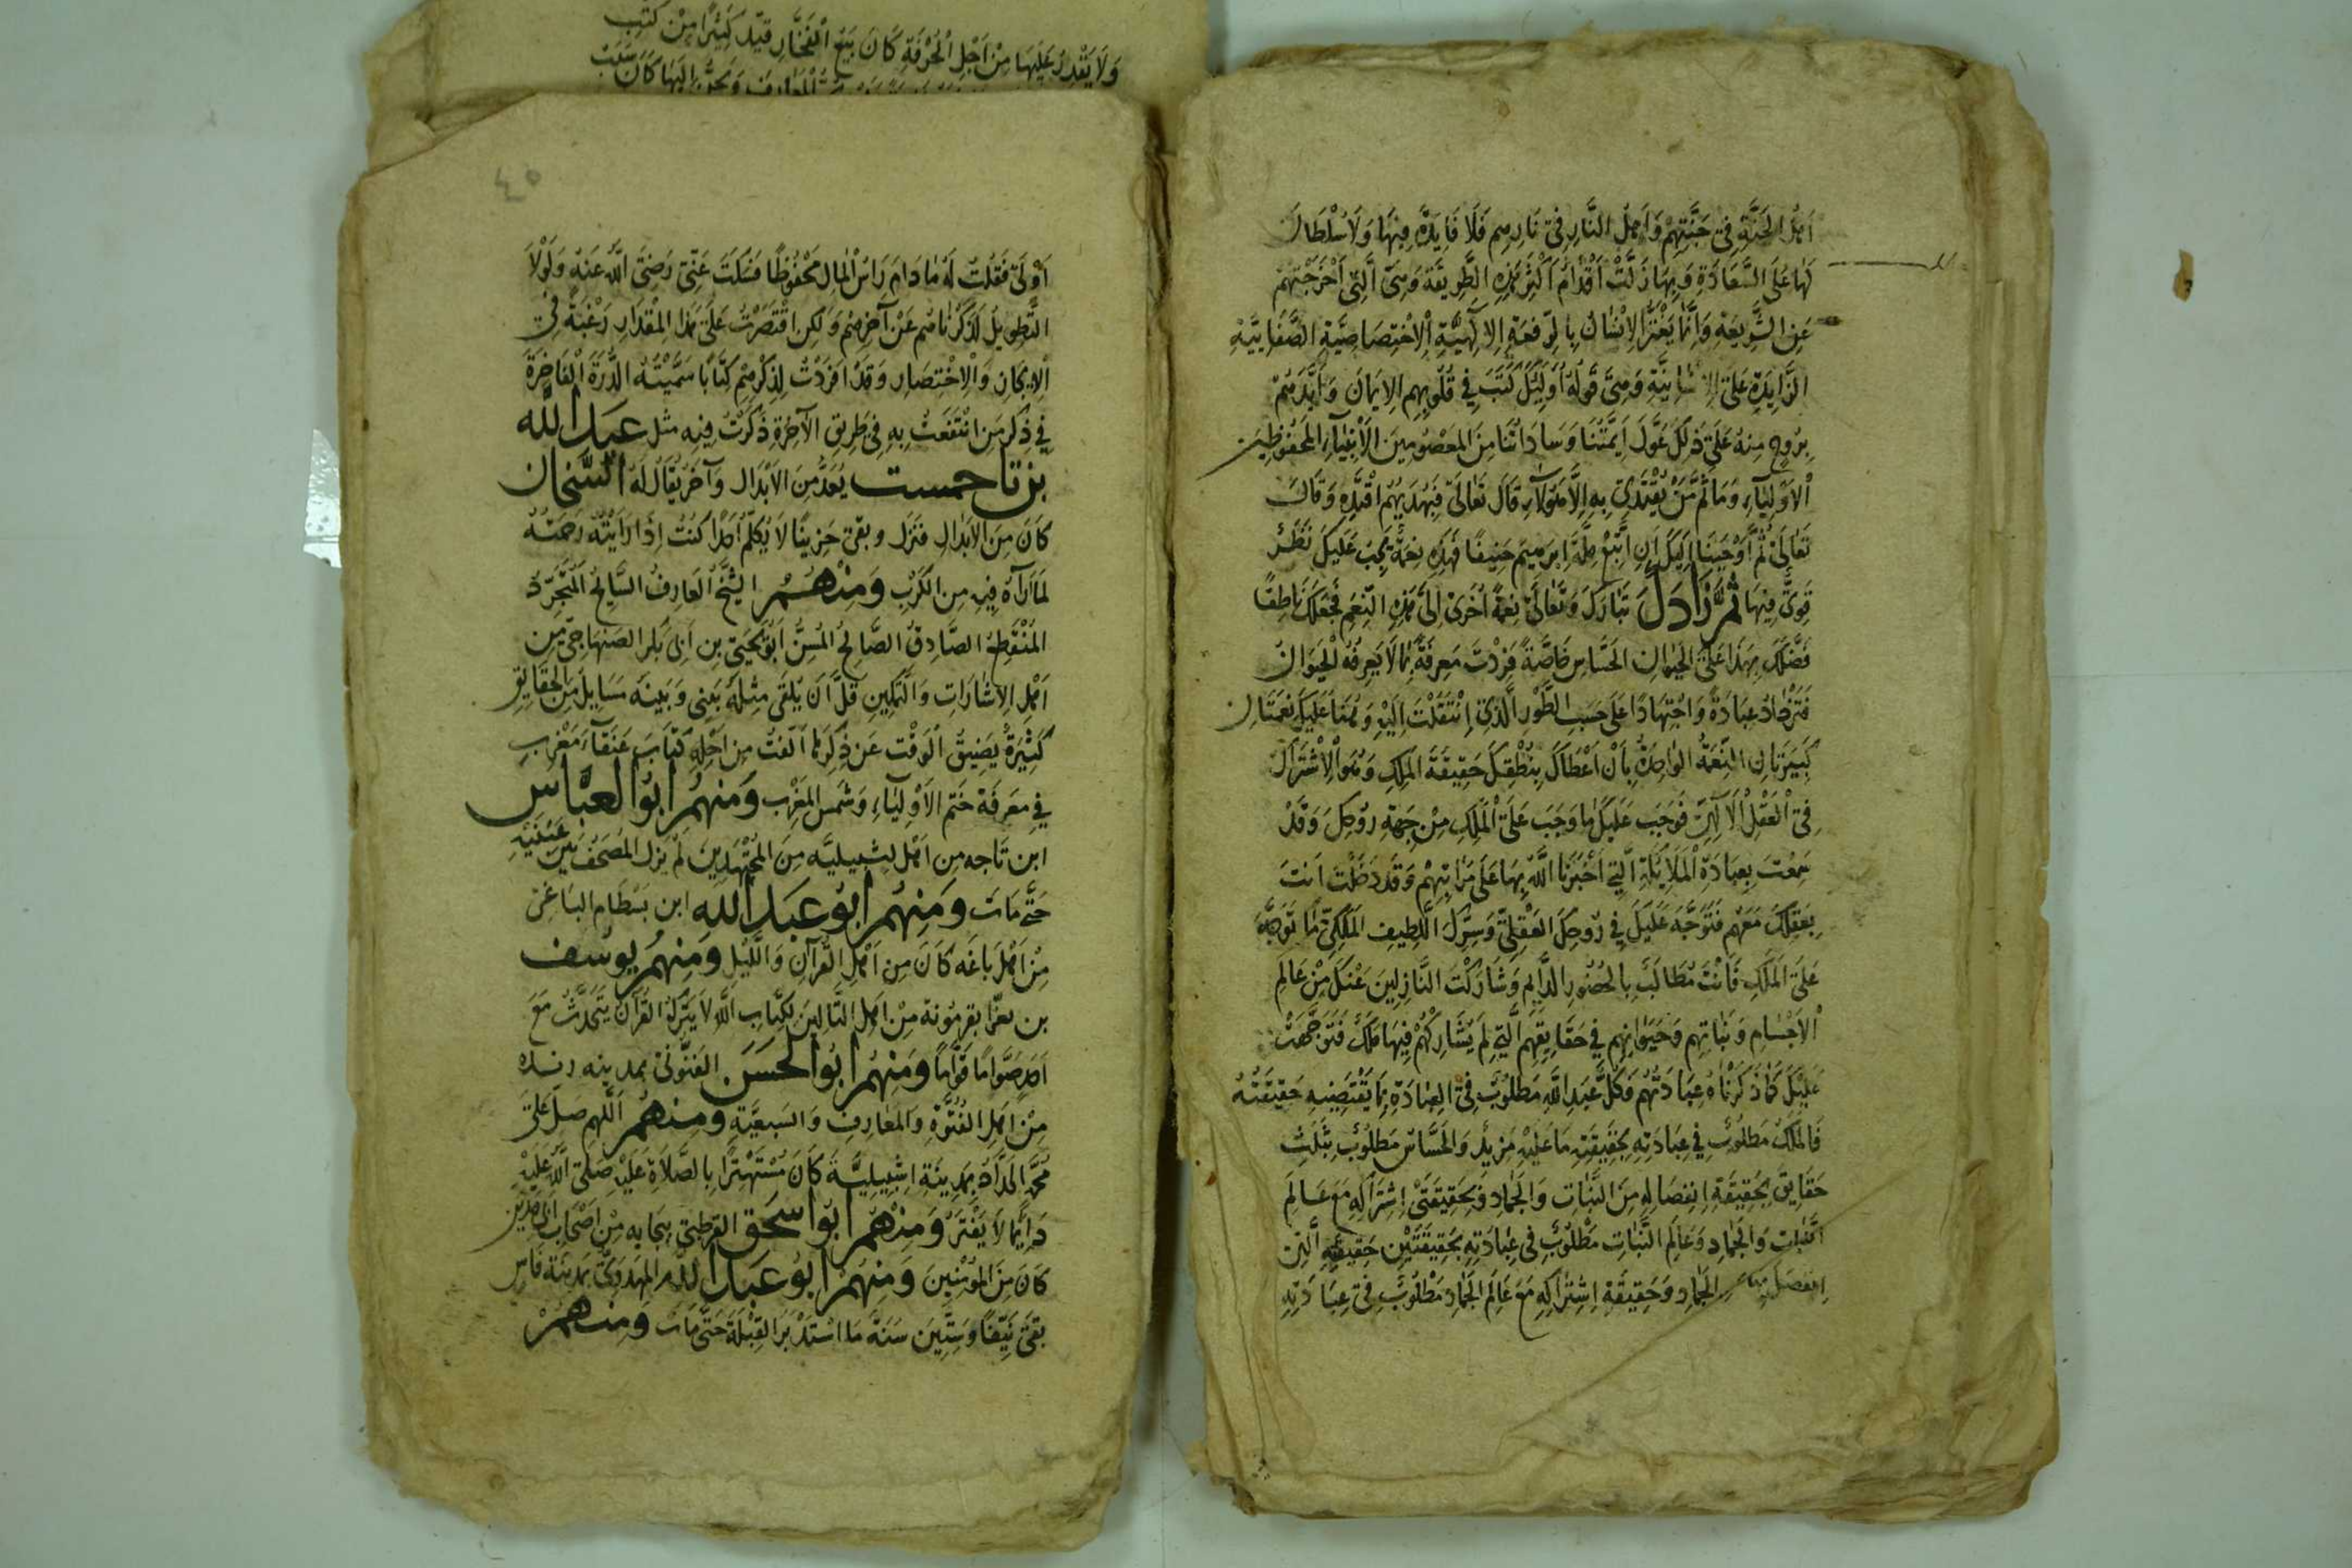 اَهلُ الجَنَّةِ فِي جَنَّتِهِمْ وَاَهلُ النَّارِ فِي نَارِهِم فَلَا فَايِدَةَ فِيهَا وَلَا سُلْطَانَ
لَهَا عَلَى السَّعَادَةِ وَبِهَا زَلَّتْ اَقْدَامُ اَكْثَرِ هَذِهِ الطَّرِيقَةِ وَهِيَ الَّتِي اَخْرَجَتْهُمْ
عَنِ الشَّرِيعَةِ وَاِنَّمَا يَعْتَزُّ الاِنْسَانُ بِالرِّفعَةِ الاِلَهِيَّةِ الاِخْتِصَاصِيَّةِ
الزَّايِدَةِ عَلَى وَهِيَ قَولُهُ اُولَئِكَ كَتَبَ فِي قُلُوبِهِم الاِيمَانَ وَاَيَّدَهُمْ
بِرُوحٍ مِنهُ عَلَى ذَلِكَ عَوَّلَ اَيِمَّتُنَا وَسَادَاتُنَا مِنَ المَعْصُومِينَ الاَنْبِيَآءِ المَحْفُوظِينَ
الاَوْلِيَآءِ وَمَا ثَمَّ مَنْ يُقْتَدَى بِهِ اِلَّا هَؤُلَآءِ قَالَ تَعَالَى فَبِهُدَيهُمُ اقْتَدِهِ وَقَالَ
تَعَالَى ثُمَّ اَوْحَيْنَا اِلَيْكَ اَنِ اتَّبِعْ مِلَّةَ اِبرَهِيمَ حَنِيفًا فَهَذِهِ نِعمَةٌ يَجِبُ عَلَيكَ نَظَرٌ
قَوِيٌّ فِيهَا ثُمَّ زَادَكَ تَبَارَكَ وَتَعَالَى نِعمَةً اُخْرَى اِلَى هَذِهِ النِّعَمِ فَجَعَلَكَ نَاطِقًا
فَضَّلَكَ بِهَذَا عَلَى الحَيَوانِ الحَسَّاسِ خَاصَّةً فَزِدْتَ مَعرِفَةً بِمَا لَا يَعرِفُهُ الحَيَوَانُ
فَتَزْدَادُ عِبَادَةً وَاجْتِهَادًا عَلَى حَسَبِ الطَّورِ الَّذِي اِنْتَقَلْتَ اِلَيْهِ وَهُنَا عَلَيكَ نِعْمَتَانِ
كَبِيرَتَانِ النِّعْمَةُ الوَاحِدَةُ بِاَنْ اَعْطَاكَ بِنُطْقِكَ حَقِيقَةَ المَلَكِ وَهُوَ الاِشْتِرَاكُ
فِي العَقْلِ الاِلَهِيِّ فَوَجَبَ عَلَيكَ مَا وَجَبَ عَلَى المَلَكِ مِنْ جِهَةِ رُوحِكَ وَقَدْ
سَمِعْتَ بِعِبَادَةِ المَلَايِكَةِ الَّتِي اَخْبَرَنَا اللهُ بِهَا عَلَى مَرَاتِبِهِمْ وَقَد دَخَلْتَ اَنتَ
بِعَقلِكَ مَعَهُم فَتَوَجَّهَ عَلَيكَ فِي رُوحِكَ العَقْلِيِّ وَسِرِّكَ اللَّطِيفِ المَلَكِيِّ مَا تَوَجَّهَ
عَلَى المَلَكِ فَاَنْتَ مُطَالَبٌ بِالحُضُورِ الدَّايِمِ وَشَارَكْتَ النَّازِلِينَ عَنْكَ مِنْ عَالَمِ
الاَجْسَامِ وَنَبَاتِهِم وَحَيَوَانِهِم فِي حَقَايِقِهِم الَّتِي لَم يُشَارِكْهُمْ فِيهَا مَلَكٌ فَتَوَجَّهَتْ
عَلَيْكَ كَمَا ذَكَرْنَاهُ عِبَادَتُهُم وَكُلُّ عَبدِ اللهِ مَطلُوبٌ فِي العِبَادَةِ بِمَا يَقْتَضِيهِ حَقِيقَتُهُ
فَالمَلَكُ مَطلُوبٌ فِي عِبَادَتِهِ بِحَقِيقَتِهِ مَا عَلَيْهِ مَزِيدٌ وَالحَسَّاسُ مَطلُوبٌ بِثَلَثِ
حَقَايِقَ بِحَقِيقَةِ اِنفِصَالِهِ مِنَ النَّبَاتِ وَالجَمَادِ وَبِحَقِيقَتَيْ اِشْتِرَاكِهِ مَعَ عَالَمِ
النَّبَاتِ وَالجَمَادِ وَعَالَمُ النَّبَاتِ مَطلُوبٌ فِي عِبَادَتِهِ بِحَقِيقَتَيْنِ حَقِيقَتِهِ الَّتِي
انفَصَلَ بِهَا الجَمَادِ وَحَقِيقَةِ اِشتِرَاكِهِ مَعَ عَالَمِ الجَمَادِ مَطْلُوبٌ فِي عِبَادَتِهِ
وَلَا يَقْدِرُ عَلَيهَا مِنْ اَجْلِ الحُرْفَةِ كَانَ يَبِيعُ الفَخَّارَ قَيَّدَ كَثِيرًا مِنْ كُتُبِ
المَعَارِفَ وَيَحِنُّ اِلَيهَا كَانَ سَبَبُ
٤٥
اَوْلَى فَقُلتُ لَهُ مَا دَامَ رَاسُ المَالِ مَحْفُوظًا فَسَكَتَ عَنِّي رَضِيَ اللهُ عَنهُ وَلَوْلَا
التَّطوِيلُ لَذَكَرْنَاهُم عَنْ آخِرِهِم وَلَكِنِ اقْتَصَرْتُ عَلَى هَذَا المِقْدَارِ رَغْبَةً فِي
الاِيجَازِ وَالاِخْتِصَارِ وَقَدْ اَفرَدْتُ لِذِكْرِهِم كِتَابًا سَمَّيْتُهُ الدُّرَّةَ الفَاخِرَةَ
فِي ذِكرِ مَنِ انْتَفَعتُ بِهِ فِي طَرِيقِ الآخِرَةِ ذَكَرْتُ فِيهِ مثل عَبدَ اللّٰه
بن تاحمست يُعَدُّ مِنَ الاَبْدَال وَآخَرُ يُقَالُ لَهُ السَّخَّان
كَانَ مِنَ الاَبدَالِ فَنَزَل وبقى حَزِينًا لَا يُكَلِّمُ اَحَدًا كُنتُ اِذَا رَاَيْتُهُ رَحِمتُهُ
لِمَا اَرَاهُ فِيهِ مِنَ الكَرْبِ وَمِنْهُمُ الشَّيْخُ العَارِفُ السَّايِحُ المُتَجَرِّدُ
المُنْقَطِعُ الصَّادِقُ الصَّالِحُ المُسِنُّ اَبُو يَحْيَى بن اَبِي بَكرِ الصِّنهَاجِيّ مِن
اَهلِ الاِشَارَاتِ وَالتَّمكِينِ قَلَّ اَن يُلقَى مِثلُهُ بَينِي وَبَينَهُ مَسَايِلُ مِنَ الحَقَايِقِ
كَثِيرَةٌ يَضِيقُ الوَقْت عَن ذِكرِهَا اَلَّفتُ مِن اَجْلِهِ كِتَابَ عَنقَآءَ مُغْرِبٍ
فِي مَعرِفَةِ خَتمِ الاَوْلِيَآءِ وَشَمسِ المَغْرِب وَمِنهُم اَبُو العَبَّاس
ابن تَاجه من اَهل اشبيليّه مِنَ المُجْتَهِدِينَ لَم يَزل المُصحَفُ بَينَ عَيْنَيْهِ
حَتَّى مَاتَ وَمِنهُم اَبُو عَبدِ اللهِ ابن بَسْطَام الباغى
مِنْ اَهلِ بَاغَه كَانَ مِن اَهلِ القُرآنِ وَاللَّيلِ وَمِنهُم يُوسُف
بن تعزّا بقرمُونة مِنْ اَهلِ التَّالِينَ لِكِتَابِ اللهِ لَا يَترُكُ القُرآنَ يَتَحَدَّثُ مَعَ
اَحَدٍ صَوَّامًا قَوَّامًا وَمِنهُم اَبُو الحَسَن بمدينه رنده
مِنْ اَهلِ الفُتُوَّةِ وَالمَعَارِفِ وَمِنهُم اَللّهم صَلِّ عَلَى
مُحَمَّدٍ الحَدَّادُ بِمَدِينَةِ اِشبِيلِيَّةَ كَانَ مُسْتَهتِرًا بِالصَّلَاةِ عَلَيْهِ صَلَّى اللهُ عَلَيْهِ
دَايِمًا لَا يَفْتَرُ وَمِنْهُمْ اَبُو اسحَق القرطبي ببجايه مِنْ اَصْحَابِ اَبِي مَدْيَن
كَانَ مِنَ المُؤْمِنِينَ وَمِنهُمْ اَبُو عَبدِ اللهِ المهدَوِيّ بمدينَة فَاس
بَقِيَ نَيِّفًا وَسِتِّينَ سَنَةً مَا اسْتَدْبَرَ القِبْلَةَ حَتَّى مَاتَ وَمِنهُمْ